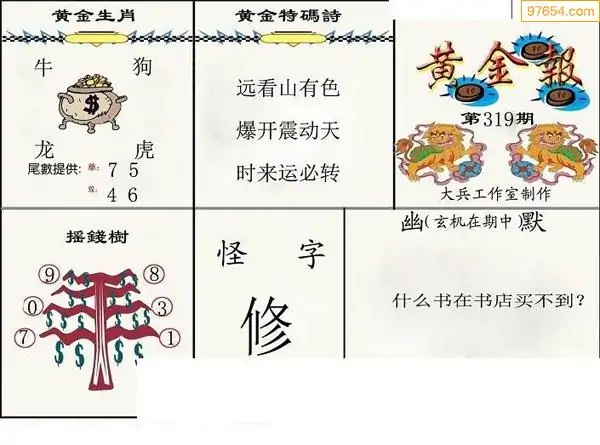 97654.com
黄金生肖
牛 狗
$
龙 虎
尾數提供: 单: 7 5
双: 4 6
黄金特碼詩
远看山有色
爆开震动天
时来运必转
黄金報
第319期
大兵工作室制作
摇錢樹
⑨ ⑧
⓪ ③
⑦ ①
$ $ $ $ $ $ $ $
怪 字
修
幽(玄机在期中)默
什么书在书店买不到?